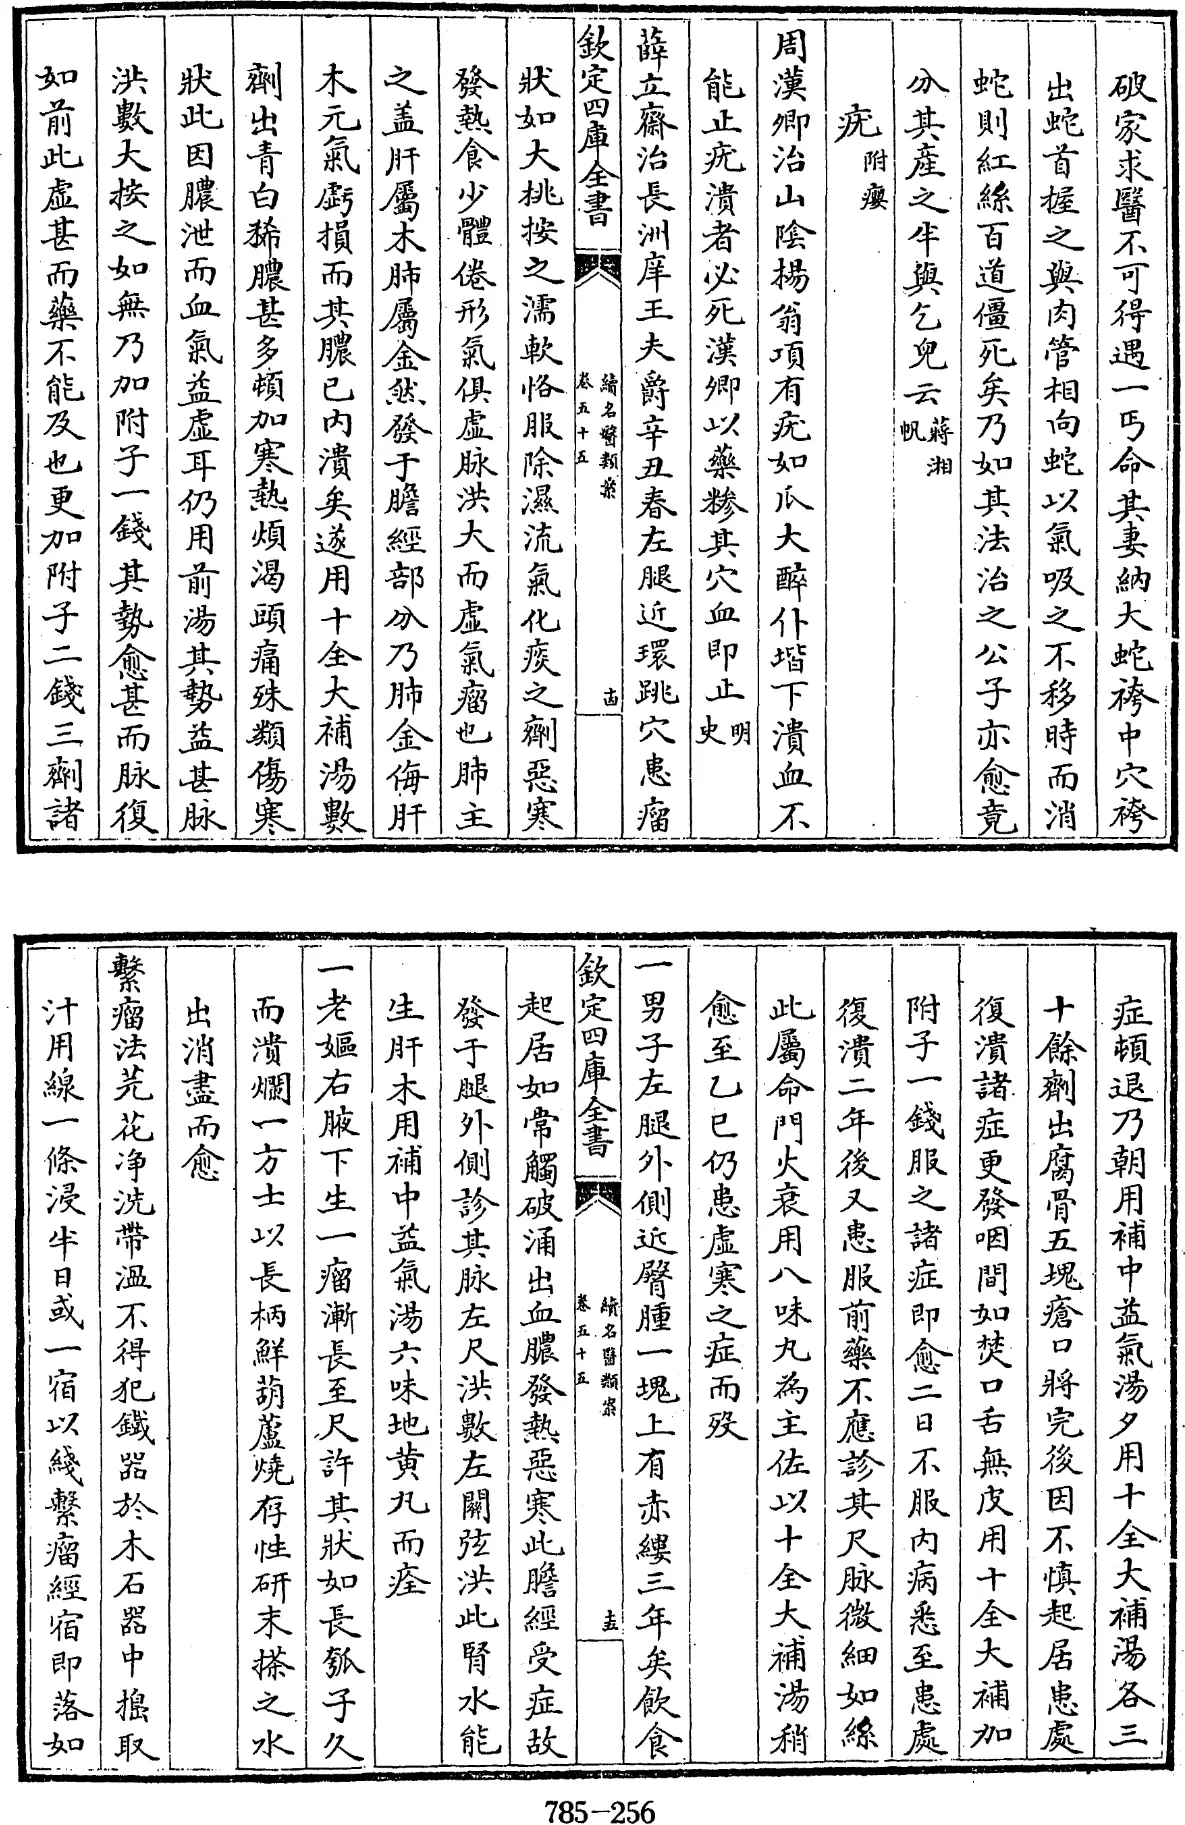 破家求醫不可得遇一丐命其妻納大蛇袴中穴袴
出蛇首握之與肉管相向蛇以氣吸之不移時而消
蛇則紅絲百道僵死矣乃如其法治之公子亦愈竟
分其產之半與乞兒云蔣湘帆
疣附癭
周漢卿治山陰揚翁項有疣如瓜大醉仆堦下潰血不
能止疣潰者必死漢卿以藥糝其穴血即止明史
薛立齋治長洲庠王夫爵辛丑春左腿近環跳穴患瘤
欽定四庫全書
續名醫類案
卷五十五
十四
狀如大桃按之濡軟恪服除濕流氣化痰之劑惡寒
發熱食少體倦形氣俱虛脉洪大而虛氣瘤也肺主
之盖肝屬木肺屬金然發于膽經部分乃肺金侮肝
木元氣虧損而其膿已内潰矣遂用十全大補湯數
劑出青白稀膿甚多頓加寒熱煩渴頭痛殊類傷寒
狀此因膿泄而血氣益虛耳仍用前湯其勢益甚脉
洪數大按之如無乃加附子一錢其勢愈甚而脉復
如前此虛甚而藥不能及也更加附子二錢三劑諸
症頓退乃朝用補中益氣湯夕用十全大補湯各三
十餘劑出腐骨五塊瘡口將完後因不慎起居患處
復潰諸症更發咽間如焚口舌無皮用十全大補加
附子一錢服之諸症即愈二日不服内病悉至患處
復潰二年後又患服前藥不應診其尺脉微細如絲
此屬命門火衰用八味丸為主佐以十全大補湯稍
愈至乙巳仍患虛寒之症而歿
一男子左腿外側近臀腫一塊上有赤縷三年矣飲食
欽定四庫全書
續名醫類案
卷五十五
十五
起居如常觸破涌出血膿發熱惡寒此膽經受症故
發于腿外側診其脉左尺洪數左關弦洪此腎水能
生肝木用補中益氣湯六味地黄丸而痊
一老嫗右腋下生一瘤漸長至尺許其狀如長瓠子久
而潰爛一方士以長柄鮮葫蘆燒存性研末搽之水
出消盡而愈
繫瘤法芫花净洗帶溫不得犯鐵器於木石器中搗取
汁用線一條浸半日或一宿以綫繫瘤經宿即落如
785-256